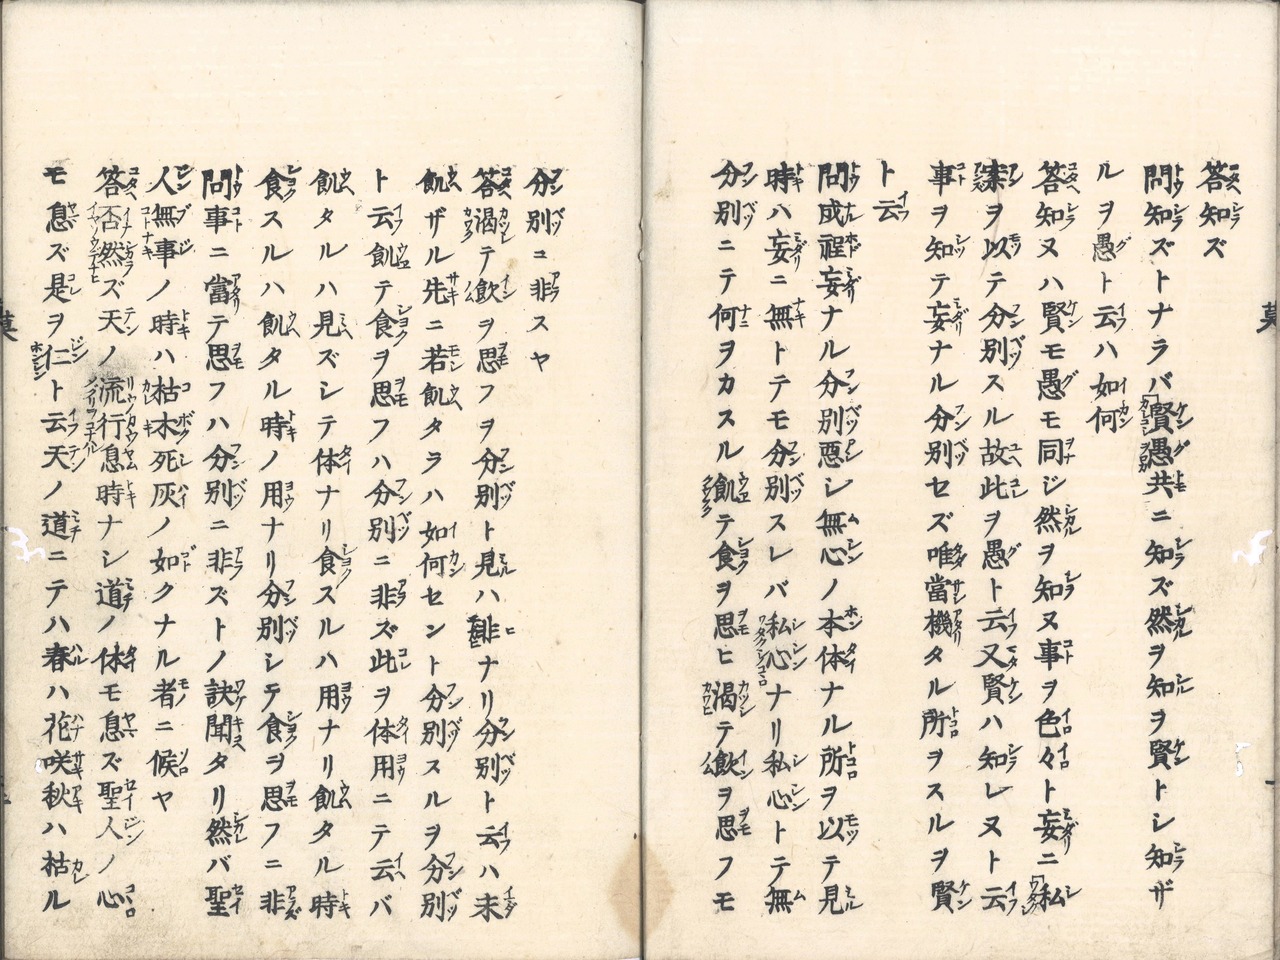 答知ズ
問知ズトナラバ賢愚共ニ知ズ然ヲ知ヲ賢トシ知ザ
ルヲ愚ト云ハ如何
答知ヌハ賢モ愚モ同ジ然ヲ知ヌ事ヲ色々ト妄ニ私
案ヲ以テ分別スル故此ヲ愚ト云又賢ハ知レヌト云
事ヲ知テ妄ナル分別セズ唯當機タル所ヲスルヲ賢
ト云
問成程妄ナル分別惡シ無心ノ本体ナル所ヲ以テ見
時ハ妄ニ無トテモ分別スレバ私心ナリ私心トテ無
分別ニテ何ヲカスル飢テ食ヲ思ヒ渇テ飲ヲ思フモ
分別ニ非スヤ
答渇テ飲ヲ思フヲ分別ト見ハ非ナリ分別ト云ハ未
飢ザル先ニ若飢タラハ如何セント分別スルヲ分別
ト云飢テ食ヲ思フハ分別ニ非ズ此ヲ体用ニテ云バ
飢タルハ見ズシテ体ナリ食スルハ用ナリ飢タル時
食スルハ飢タル時ノ用ナリ分別シテ食ヲ思フニ非
問事ニ當テ思フハ分別ニ非ズトノ訣聞タリ然バ聖
人無事ノ時ハ枯木死灰ノ如クナル者ニ候ヤ
答否然ズ天ノ流行息時ナシ道ノ体モ息ズ聖人ノ心
モ息ズ是ヲ仁ト云天ノ道ニテハ春ハ花咲秋ハ枯ル